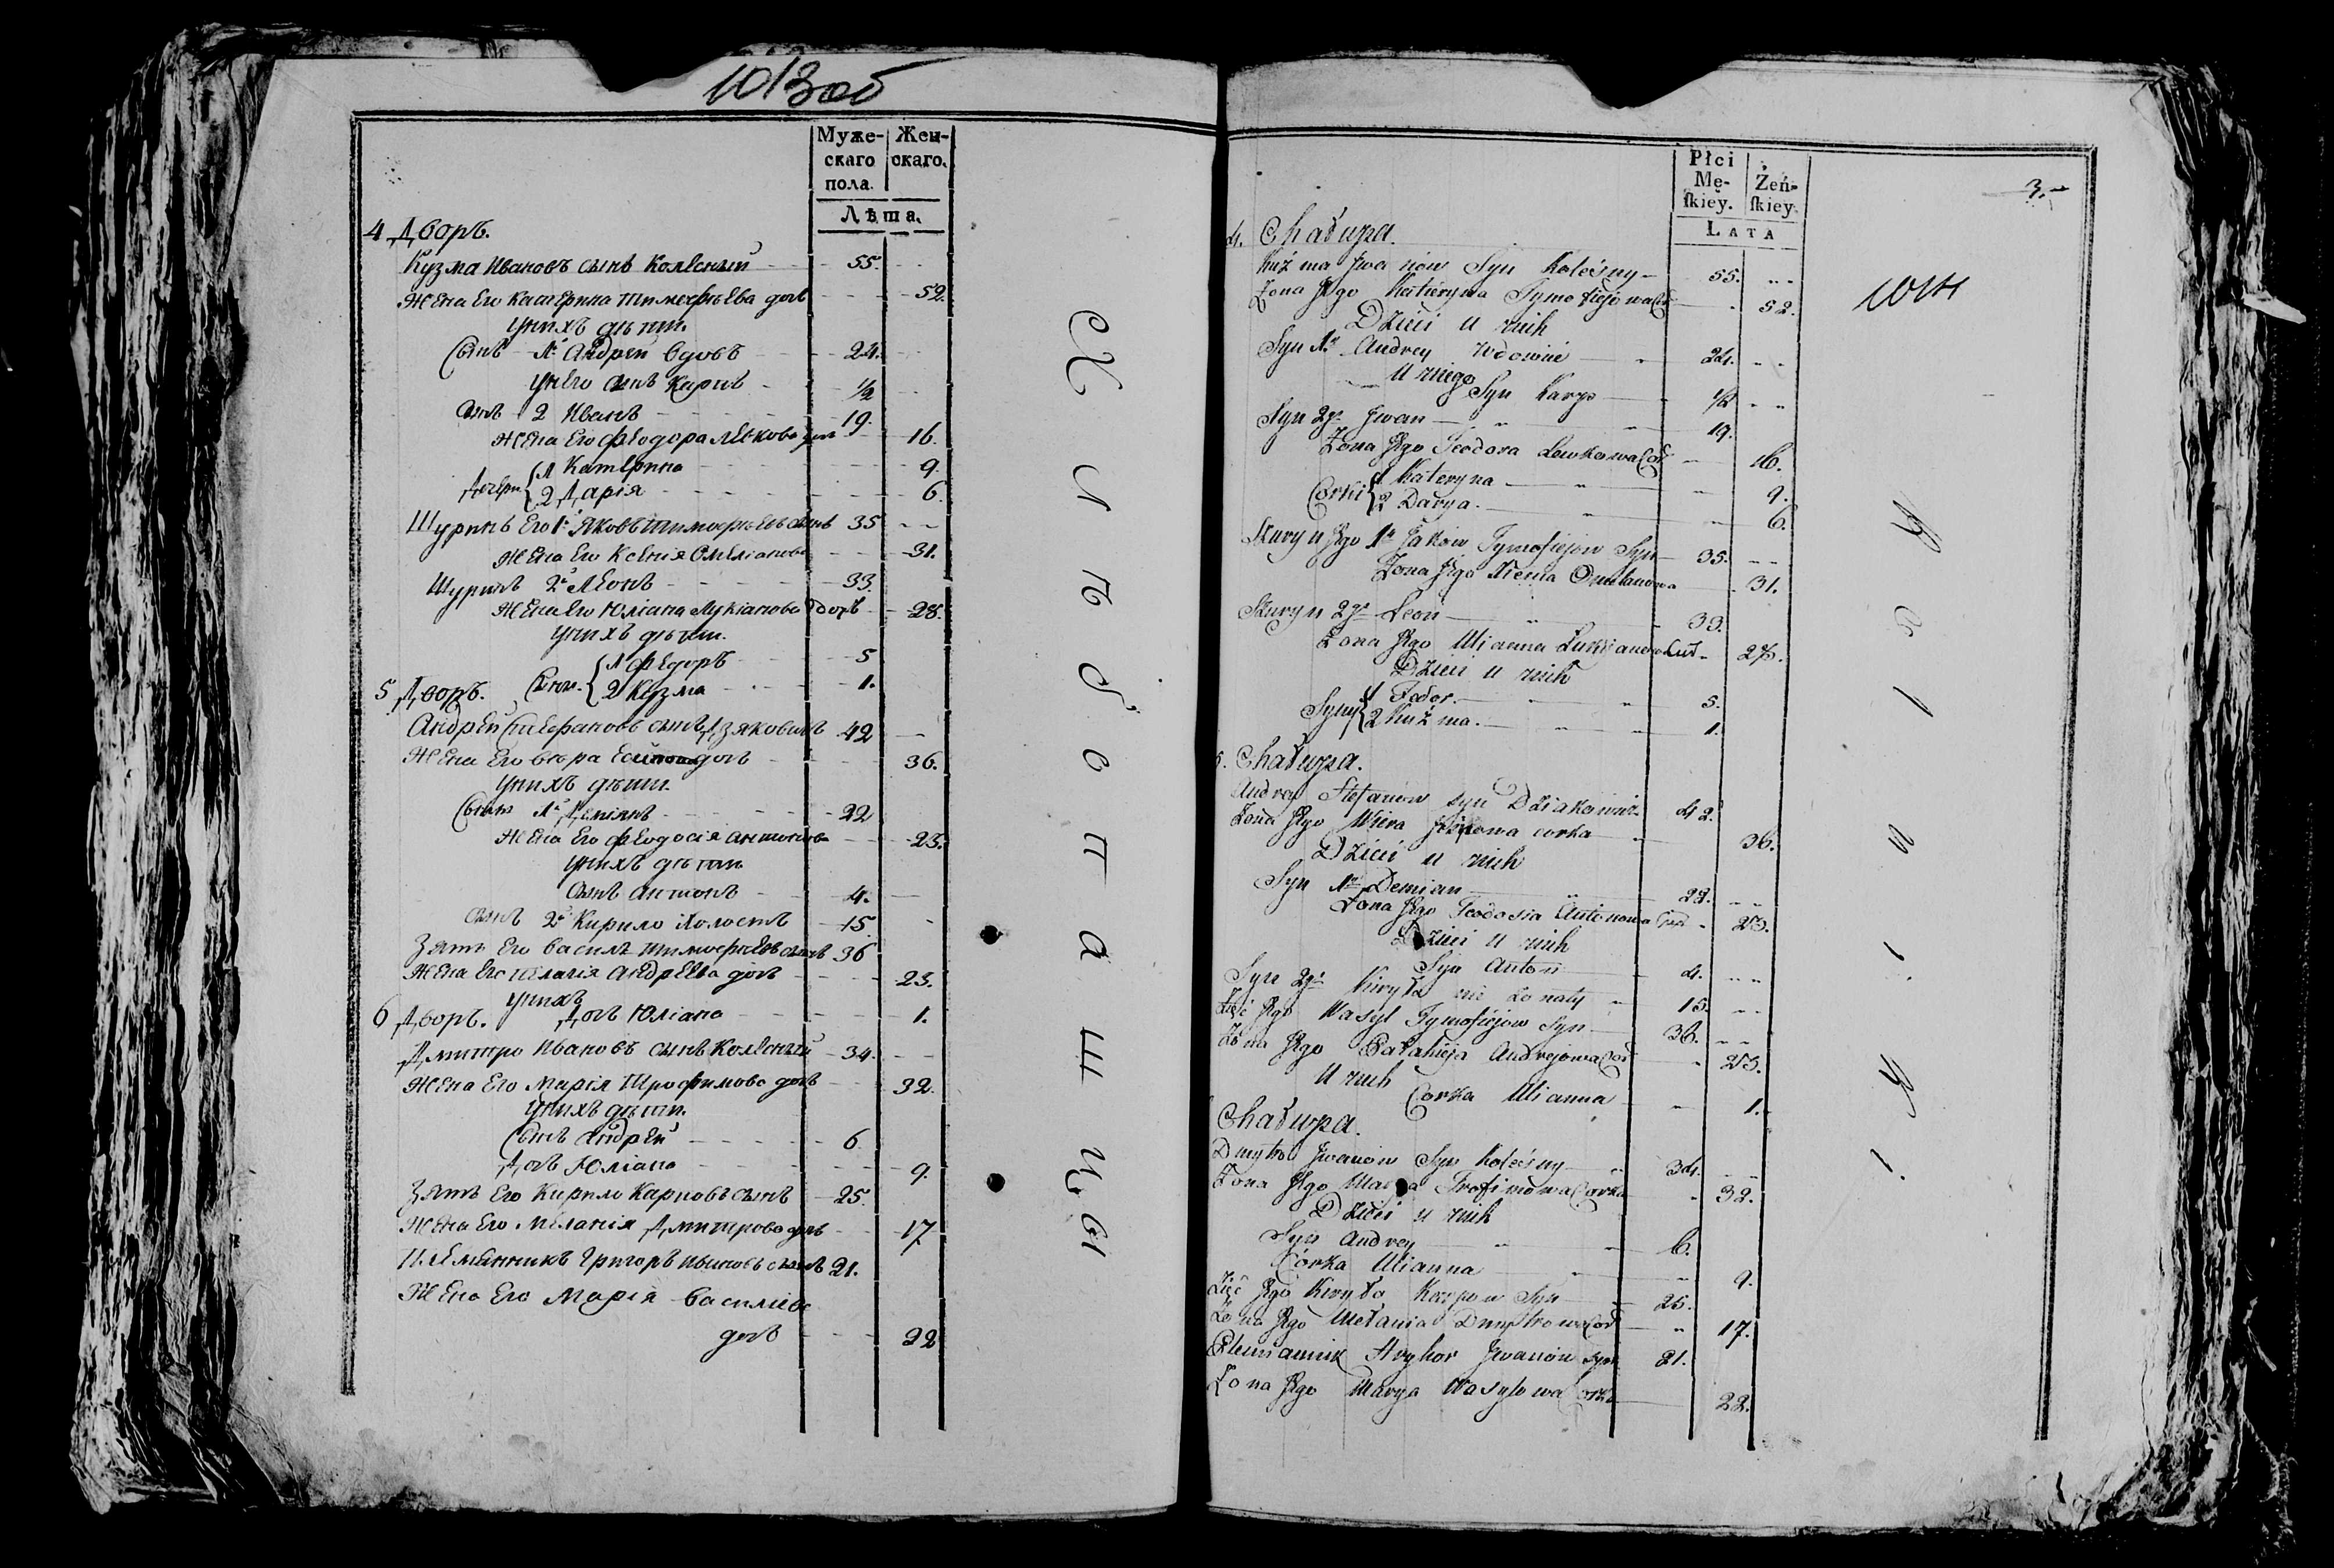 1013 об
Муже-
скаго
пола.
Жен-
скаго.
Лѣта.
4 Дворъ.
Кузма Ивановъ сынъ Колесный 55.
Жена Его Катерина Тимофѣева дочь 52.
У нихъ дѣти
Сынъ 1й Андрей вдовъ 24.
У него сынъ Карпъ ½
Сынъ 2 Иванъ 19.
Жена Его Феодора Левкова доч 16.
Дочери { 1 Катерина 9.
2 Дарія 6.
Щуринъ Его 1й Яковъ Тимофѣевъ сынъ 35
Жена Его Ксенія Омелianова 31.
Щуринъ 2й Леонъ 33.
Жена Его Юліана Лукіанова дочь 28.
У нихъ дѣти.
Сыны { 1 Федоръ 5
2 Кузма 1.
5 Дворъ.
Андрей Стефановъ сынъ Дзяковичъ 42
Жена Его Вѣра дочь 36.
У нихъ дѣти.
Сынъ 1й Деміянъ 22
Жена Его Феодосія Антонова 23.
У нихъ дѣти
Сынъ Антонъ 4.
Сынъ 2й Кирило Холостъ 15
Зять Его Василь Тимофѣевъ сынъ 36
Жена Его Пелагія Андрѣева дочь 23.
У нихъ
Дочь Юліана 1.
6 Дворъ.
Дмитро Ивановъ сынъ Колесный 34.
Жена Его Марія Трофимова дочь 32.
У нихъ дѣти.
Сынъ Андрей 6
Дочь Юліана 9.
Зять Его Кирило Карповъ сынъ 25.
Жена Его Меланія Дмитрова дочь 17
Племянникъ Григоръ Ивановъ сынъ 21.
Жена Его Марія Василіева
дочь 22
Płci
Mę-
skiey.
Żeń-
skiey.
LATA
3.
1014
4. Chałupa.
Kuźma Jwanów Syn Koleśny 55.
Żona Jego Kateryna Tymofiejowa Cor 52.
Dzieci u nich
Syn 1y Andrey Wdowiec 24.
U niego
Syn Karpo ½
Syn 2gi Jwan 19.
Żona Jego Teodora Lewkowa Cor 16.
Corki { 1 Kateryna 9.
2 Darya. 6.
Szuryn Jego 1y Jakow Tymofiejow Syn 35.
Żona Jego Xienia Omelanowa 31.
Szuryn 2gi Leon 33.
Żona Jego Ulianna Łukianowa Cor 28.
Dzieci u nich
Syny { 1 Fedor. 5.
2 Kuźma. 1.
5. Chałupa.
Andrey Stefanow syn Dziakowicz 42.
Żona Jego Wiera corka 36.
Dzieci u nich
Syn 1y Demian 22.
Żona Jego Teodosia Antonowa Cor 23.
Dzieci u nich
Syn Anton 4.
Syn 2gi Kiryło nie żonaty 15.
Zięć Jego Wasyl Tymofiejow Syn 36.
Żona Jego Pałahieja Andrejowa Cor 23.
U nich
Corka Ulianna 1.
Chałupa.
Dmytro Jwanow Syn Koleśny 34.
Żona Jego Marya Trofimowa Corka 32.
Dzieci u nich
Syn Andrey 6.
Córka Ulianna 9.
Zięć Jego Kiryło Karpow Syn 25.
Żona Jego Mełania Dmytrowa Cor 17.
Plemiannik Hryhor Jwanów Syn 21.
Żona Jego Marya Wasylowa Corka 22.